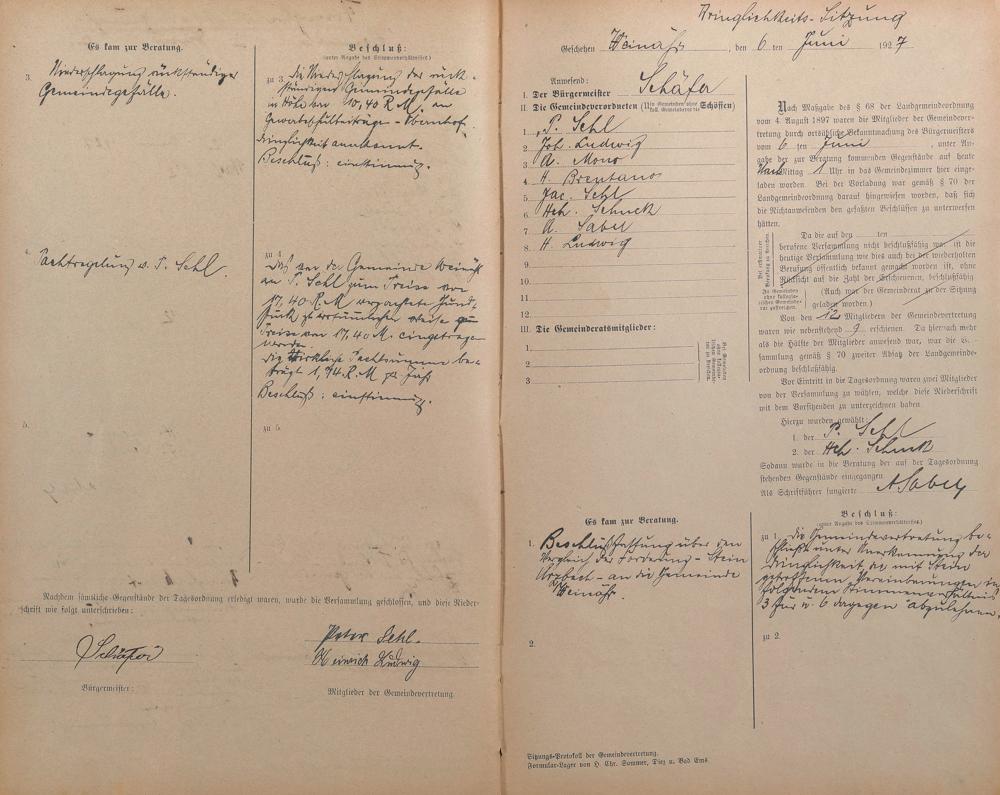 Es kam zur Beratung.
Beschluß:
(unter Angabe des Stimmenverhältnisses.)
3.
Niederschlagung rückständiger
Gemeindegefälle.
zu 3. die Niederschlagung der rück-
ständigen Gemeindegefälle
in Höhe von 10,40 R.M. an
Dringlichkeit anerkannt.
Beschluß: einstimmig.
4.
Pachtregelung v. P. Sehl.
zu 4.
Das von der Gemeinde Weinähr
an P. Sehl zum Preise von
17,40 R.M. verpachtete Grund-
stück
Preise von 17,40 M. eingetragen
worden.
die wirkliche Pachtsumme be-
trägt 1,74 R.M. pro Jahr
Beschluß: einstimmig.
5.
zu 5.
Nachdem sämtliche Gegenstände der Tagesordnung erledigt waren, wurde die Versammlung geschlossen, und diese Nieder-
schrift wie folgt unterschrieben:
Schäfer
Peter Sehl.
Heinrich Ludwig
Bürgermeister:
Mitglieder der Gemeindevertretung.
Dringlichkeits-Sitzung
Geschehen Weinähr, den 6 ten Juni 1927
Anwesend:
I. Der Bürgermeister Schäfer
II. Die Gemeindeverordneten (Schöffen)
1. P. Sehl
2. Joh. Ludwig
3. A. Mono
4. H. Brentano
5. Jac. Sehl
6. Hch. Schuck
7. A. Sabel
8. H. Ludwig
9.
10.
11.
12.
III. Die Gemeinderatsmitglieder:
1.
2.
3.
Nach Maßgabe des § 68 der Landgemeindeordnung
vom 4. August 1897 waren die Mitglieder der Gemeindever-
tretung durch ortsübliche Bekanntmachung des Bürgermeisters
vom 6 ten Juni, unter An-
gabe der zur Beratung kommenden Gegenstände auf heute
Nachmittag 1 Uhr in das Gemeindezimmer hier einge-
laden worden. Bei der Vorladung war gemäß § 70 der
Landgemeindeordnung darauf hingewiesen worden, daß sich
die Nichtanwesenden den gefaßten Beschlüssen zu unterwerfen
hätten.
Da die auf den ten
berufene Versammlung nicht beschlußfähig war, ist die
heutige Versammlung wie dies auch bei der wiederholten
Berufung öffentlich bekannt gemacht worden ist, ohne
Rücksicht auf die Zahl der Erschienenen, beschlußfähig.
(Auch war der Gemeinderat zu der Sitzung
geladen worden.)
Von den 12 Mitgliedern der Gemeindevertretung
waren wie nebenstehend 9 erschienen. Da hiernach mehr
als die Hälfte der Mitglieder anwesend war, war die Ver-
sammlung gemäß § 70 zweiter Absatz der Landgemeinde-
ordnung beschlußfähig.
Vor Eintritt in die Tagesordnung waren zwei Mitglieder
von der Versammlung zu wählen, welche diese Niederschrift
mit dem Vorsitzenden zu unterzeichnen haben
Hierzu wurden gewählt:
1. der P. Sehl
2. der Hch. Schuck
Sodann wurde in die Beratung der auf der Tagesordnung
stehenden Gegenstände eingegangen
Als Schriftführer fungierte A Sabel
Es kam zur Beratung.
Beschluß:
(unter Angabe des Stimmenverhältnisses.)
1. Beschlußfassung über den
Vergleich der Forderung - Stein
Arzbach - an die Gemeinde
Weinähr.
zu 1. die Gemeindevertretung be-
schließt unter Anerkennung der
Dringlichkeit die mit Stein
getroffenen Vereinbarungen in
folgendem Stimmenverhältnis
3 für u. 6 dagegen abzulehnen.
2.
zu 2.
Sitzungs-Protokoll der Gemeindevertretung.
Formular-Lager von H. Chr. Sommer, Diez u. Bad Ems.